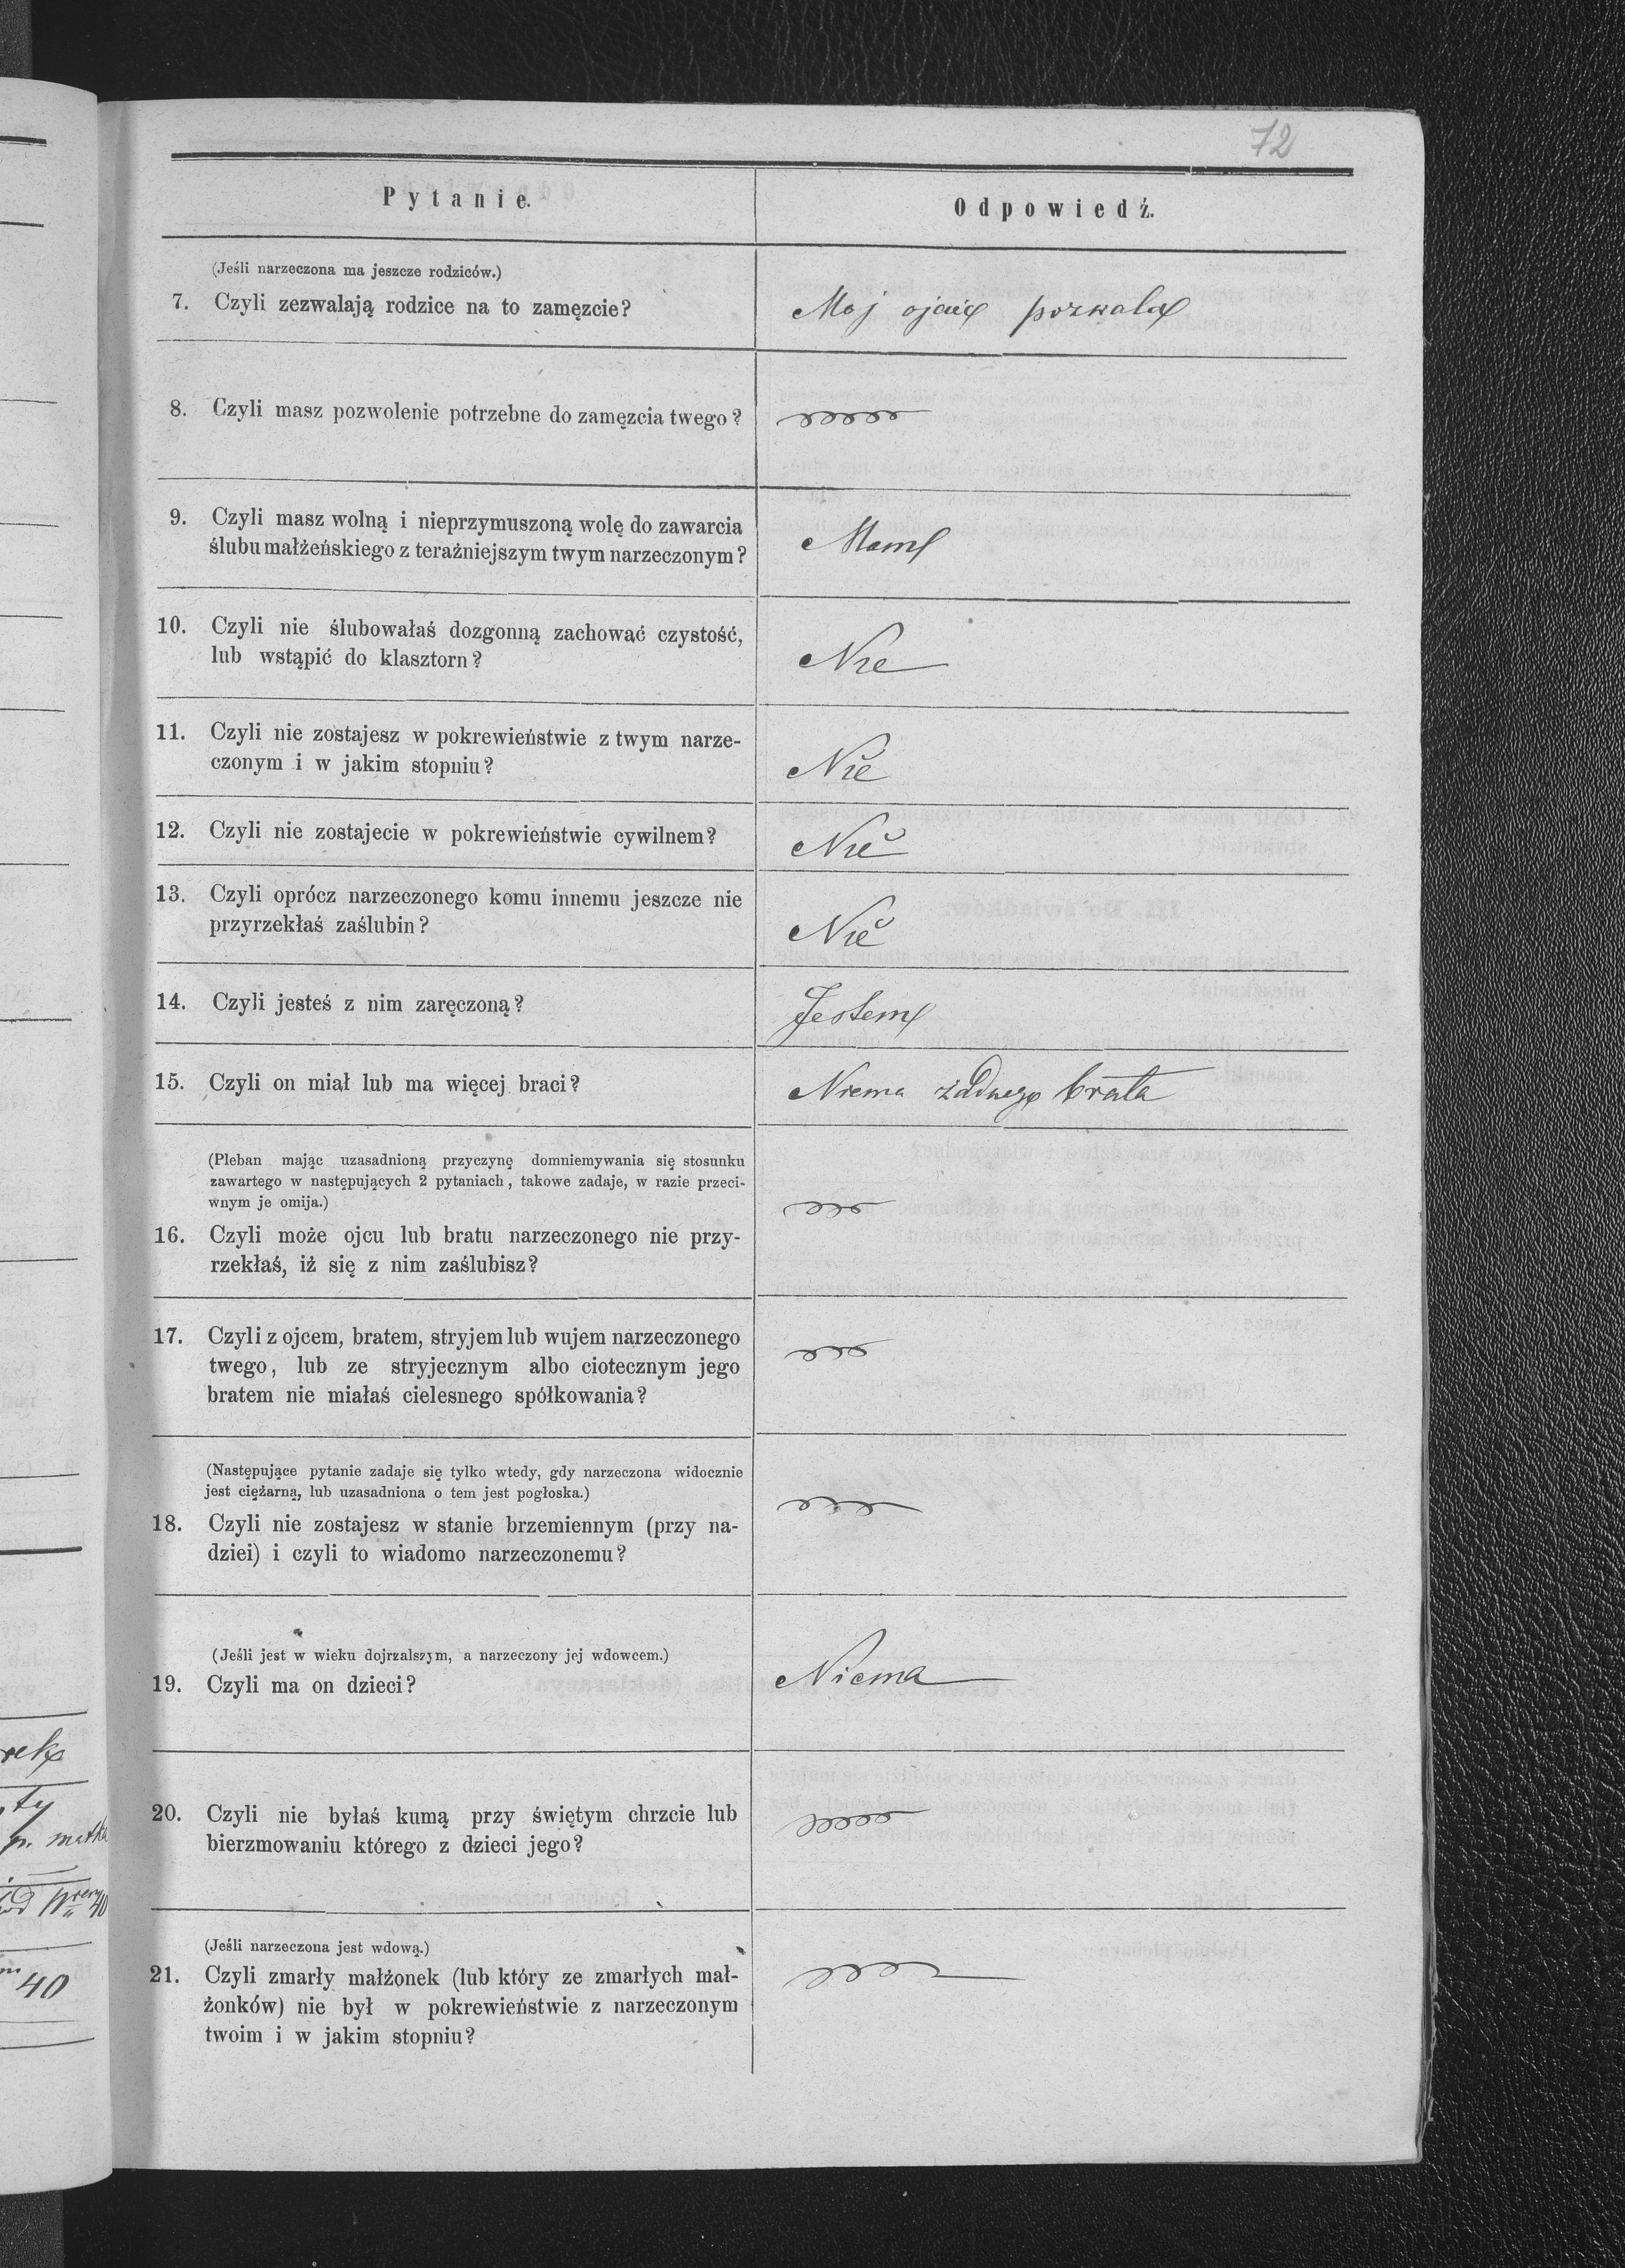 72
Pytanie.
Odpowiedź.
(Jeśli narzeczona ma jeszcze rodziców.)
7. Czyli zezwalają rodzice na to zamęzcie?
Moj ojciec pozwala
8. Czyli masz pozwolenie potrzebne do zamęzcia twego?
9. Czyli masz wolną i nieprzymuszoną wolę do zawarcia
ślubu małżeńskiego z teraźniejszym twym narzeczonym?
Mam
10. Czyli nie ślubowałaś dozgonną zachować czystość,
lub wstąpić do klasztorn?
Nie
11. Czyli nie zostajesz w pokrewieństwie z twym narze-
czonym i w jakim stopniu?
Nie
12. Czyli nie zostajecie w pokrewieństwie cywilnem?
Nie
13. Czyli oprócz narzeczonego komu innemu jeszcze nie
przyrzekłaś zaślubin?
Nie
14. Czyli jesteś z nim zaręczoną?
Jestem
15. Czyli on miał lub ma więcej braci?
Niema żadnego brata
(Pleban mając uzasadnioną przyczynę domniemywania się stosunku
zawartego w następujących 2 pytaniach, takowe zadaje, w razie przeci-
wnym je omija.)
16. Czyli może ojcu lub bratu narzeczonego nie przy-
rzekłaś, iż się z nim zaślubisz?
17. Czyli z ojcem, bratem, stryjem lub wujem narzeczonego
twego, lub ze stryjecznym albo ciotecznym jego
bratem nie miałaś cielesnego spółkowania?
(Następujące pytanie zadaje się tylko wtedy, gdy narzeczona widocznie
jest ciężarną, lub uzasadniona o tem jest pogłoska.)
18. Czyli nie zostajesz w stanie brzemiennym (przy na-
dziei) i czyli to wiadomo narzeczonemu?
(Jeśli jest w wieku dojrzalszym, a narzeczony jej wdowcem.)
19. Czyli ma on dzieci?
Niema
20. Czyli nie byłaś kumą przy świętym chrzcie lub
bierzmowaniu którego z dzieci jego?
(Jeśli narzeczona jest wdową.)
21. Czyli zmarły małżonek (lub który ze zmarłych mał-
żonków) nie był w pokrewieństwie z narzeczonym
twoim i w jakim stopniu?
matka
40
40